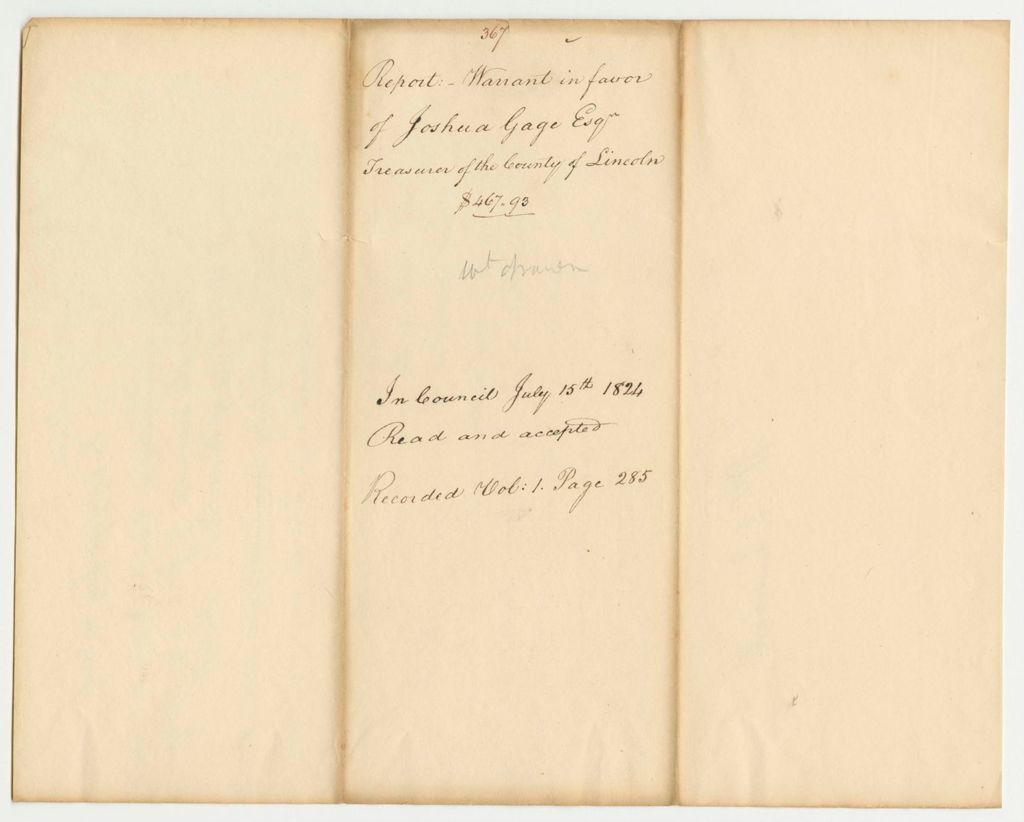 367
Report:- Warrant in favor
of Joshua Gage Esqr
Treasurer of the County of Lincoln
$467.93
Wt drawn
In Council July 15th 1824
Read and accepted
Recorded Vol: 1. Page 285